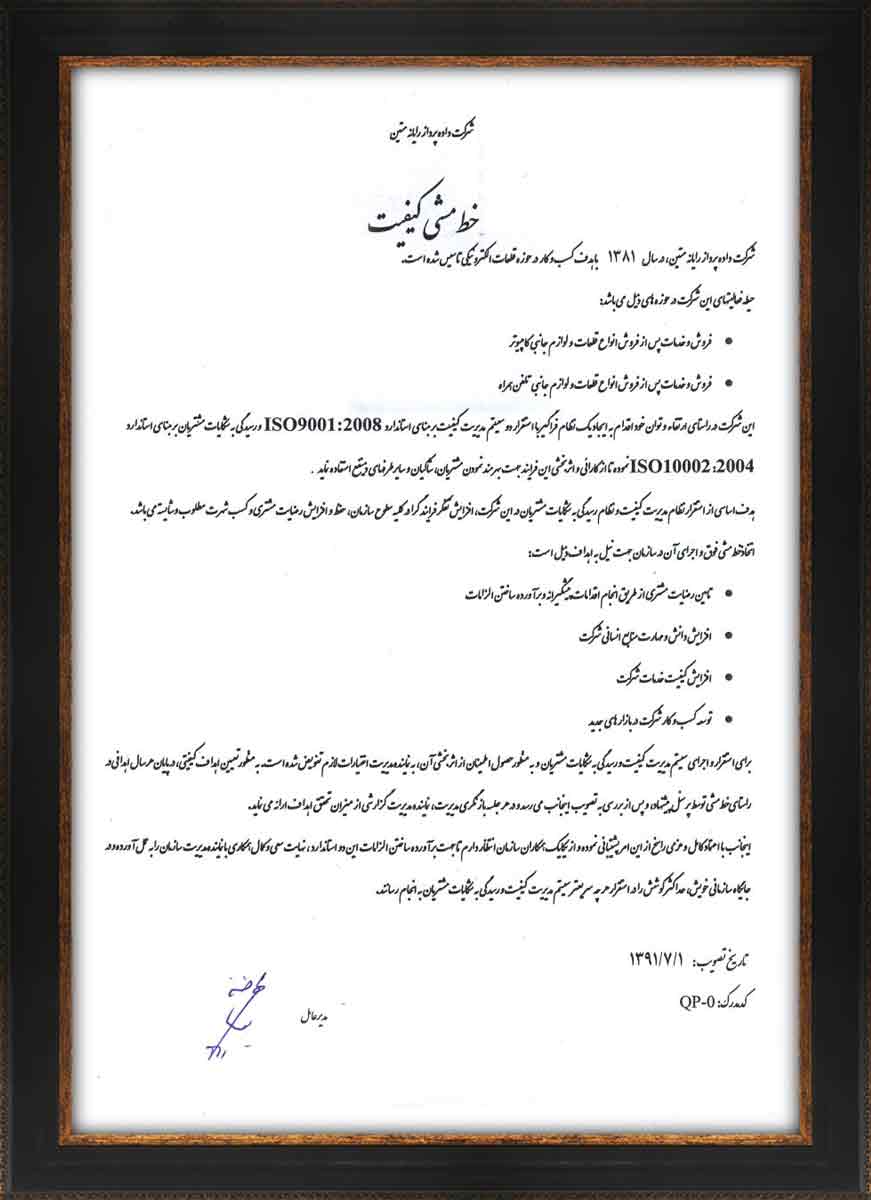 شرکت داده پرداز رایانه متین
خط مشی کیفیت
شرکت داده پرداز رایانه متین، در سال ۱۳۸۱ با هدف کسب و کار در حوزه قطعات الکترونیکی تاسیس شده است.
حیطه فعالیتهای این شرکت در حوزه های ذیل می باشد:
• فروش و خدمات پس از فروش انواع قطعات و لوازم جانبی کامپیوتر
• فروش و خدمات پس از فروش انواع قطعات و لوازم جانبی تلفن همراه
این شرکت در راستای ارتقاء و توان خود اقدام به ایجاد یک نظام فراگیر با استقرار دو سیستم مدیریت کیفیت بر مبنای استاندارد ISO9001:2008 و رسیدگی به شکایات مشتریان بر مبنای استاندارد
ISO10002:2004 نموده تا از کارائی و اثربخشی این فرایند جهت بهره مند نمودن مشتریان، شاکیان و سایر طرفهای ذینفع استفاده نماید .
هدف اساسی از استقرار نظام مدیریت کیفیت و نظام رسیدگی به شکایات مشتریان در این شرکت، افزایش تفکر فرایند گرا در کلیه سطوح سازمان، حفظ و افزایش رضایت مشتری و کسب شهرت مطلوب و شایسته می باشد.
اتخاذ خط مشی فوق و اجرای آن در سازمان جهت نیل به اهداف ذیل است:
• تامین رضایت مشتری از طریق انجام اقدامات پیشگیرانه و برآورده ساختن الزامات
• افزایش دانش و مهارت منابع انسانی شرکت
• افزایش کیفیت خدمات شرکت
• توسعه کسب و کار شرکت در بازارهای جدید
برای استقرار و اجرای سیستم مدیریت کیفیت و رسیدگی به شکایات مشتریان و به منظور حصول اطمینان از اثربخشی آن، به نماینده مدیریت اختیارات لازم تفویض شده است. به منظور تعیین اهداف کیفیتی، در پایان هر سال اهدافی در
راستای خط مشی توسط پرسنل پیشنهاد، و پس از بررسی به تصویب اینجانب می رسد و در هر جلسه بازنگری مدیریت، نماینده مدیریت گزارشی از میزان تحقق اهداف ارائه می نماید.
اینجانب با اعتقاد کامل و عزمی راسخ از این امر پشتیبانی نموده و از یکایک همکاران سازمان انتظار دارم تا جهت برآورده ساختن الزامات این دو استاندارد، نهایت سعی و کمال همکاری با نماینده مدیریت سازمان را به عمل آورده و در
جایگاه سازمانی خویش، حداکثر کوشش را در استقرار هر چه سریعتر سیستم مدیریت کیفیت و رسیدگی به شکایات مشتریان به انجام رسانند.
تاریخ تصویب: ۱۳۹۱/۷/۱
کد مدرک: QP-0
مدیر عامل